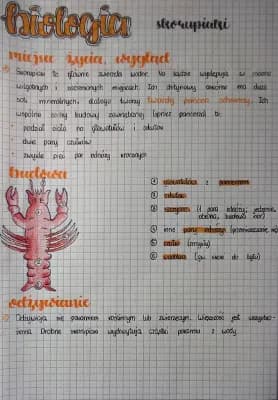 biologia
skorupiaki
miejsca życia, wygląd
Skorupiaki to głównie zwierzęta wodne. Na lądzie występują w
wilgotnych i zacienionych miejscach. Ich chitynowy oskórek ma dużo
soli mineralnych, dlatego tworzy twardy pancerz ochronny. Ich
wspólne cechy budowy zewnętrznej (oprócz pancerza) to:
podział ciała na głowotułów i odwłok
dwie pary czułków
zwykle pięć par odnóży krocznych
budowa
① głowotułów z pancerzem
② odwłok
③ szczypce (I para odnóży;
④ inne pary odnóży
⑤ czułki
⑥
odżywianie
Odżywiają się pokarmem roślinnym lub zwierzęcym. Większość jest wszystko-
żerna. Drobne skorupiaki wychwytują cząstki pokarmu z wody.